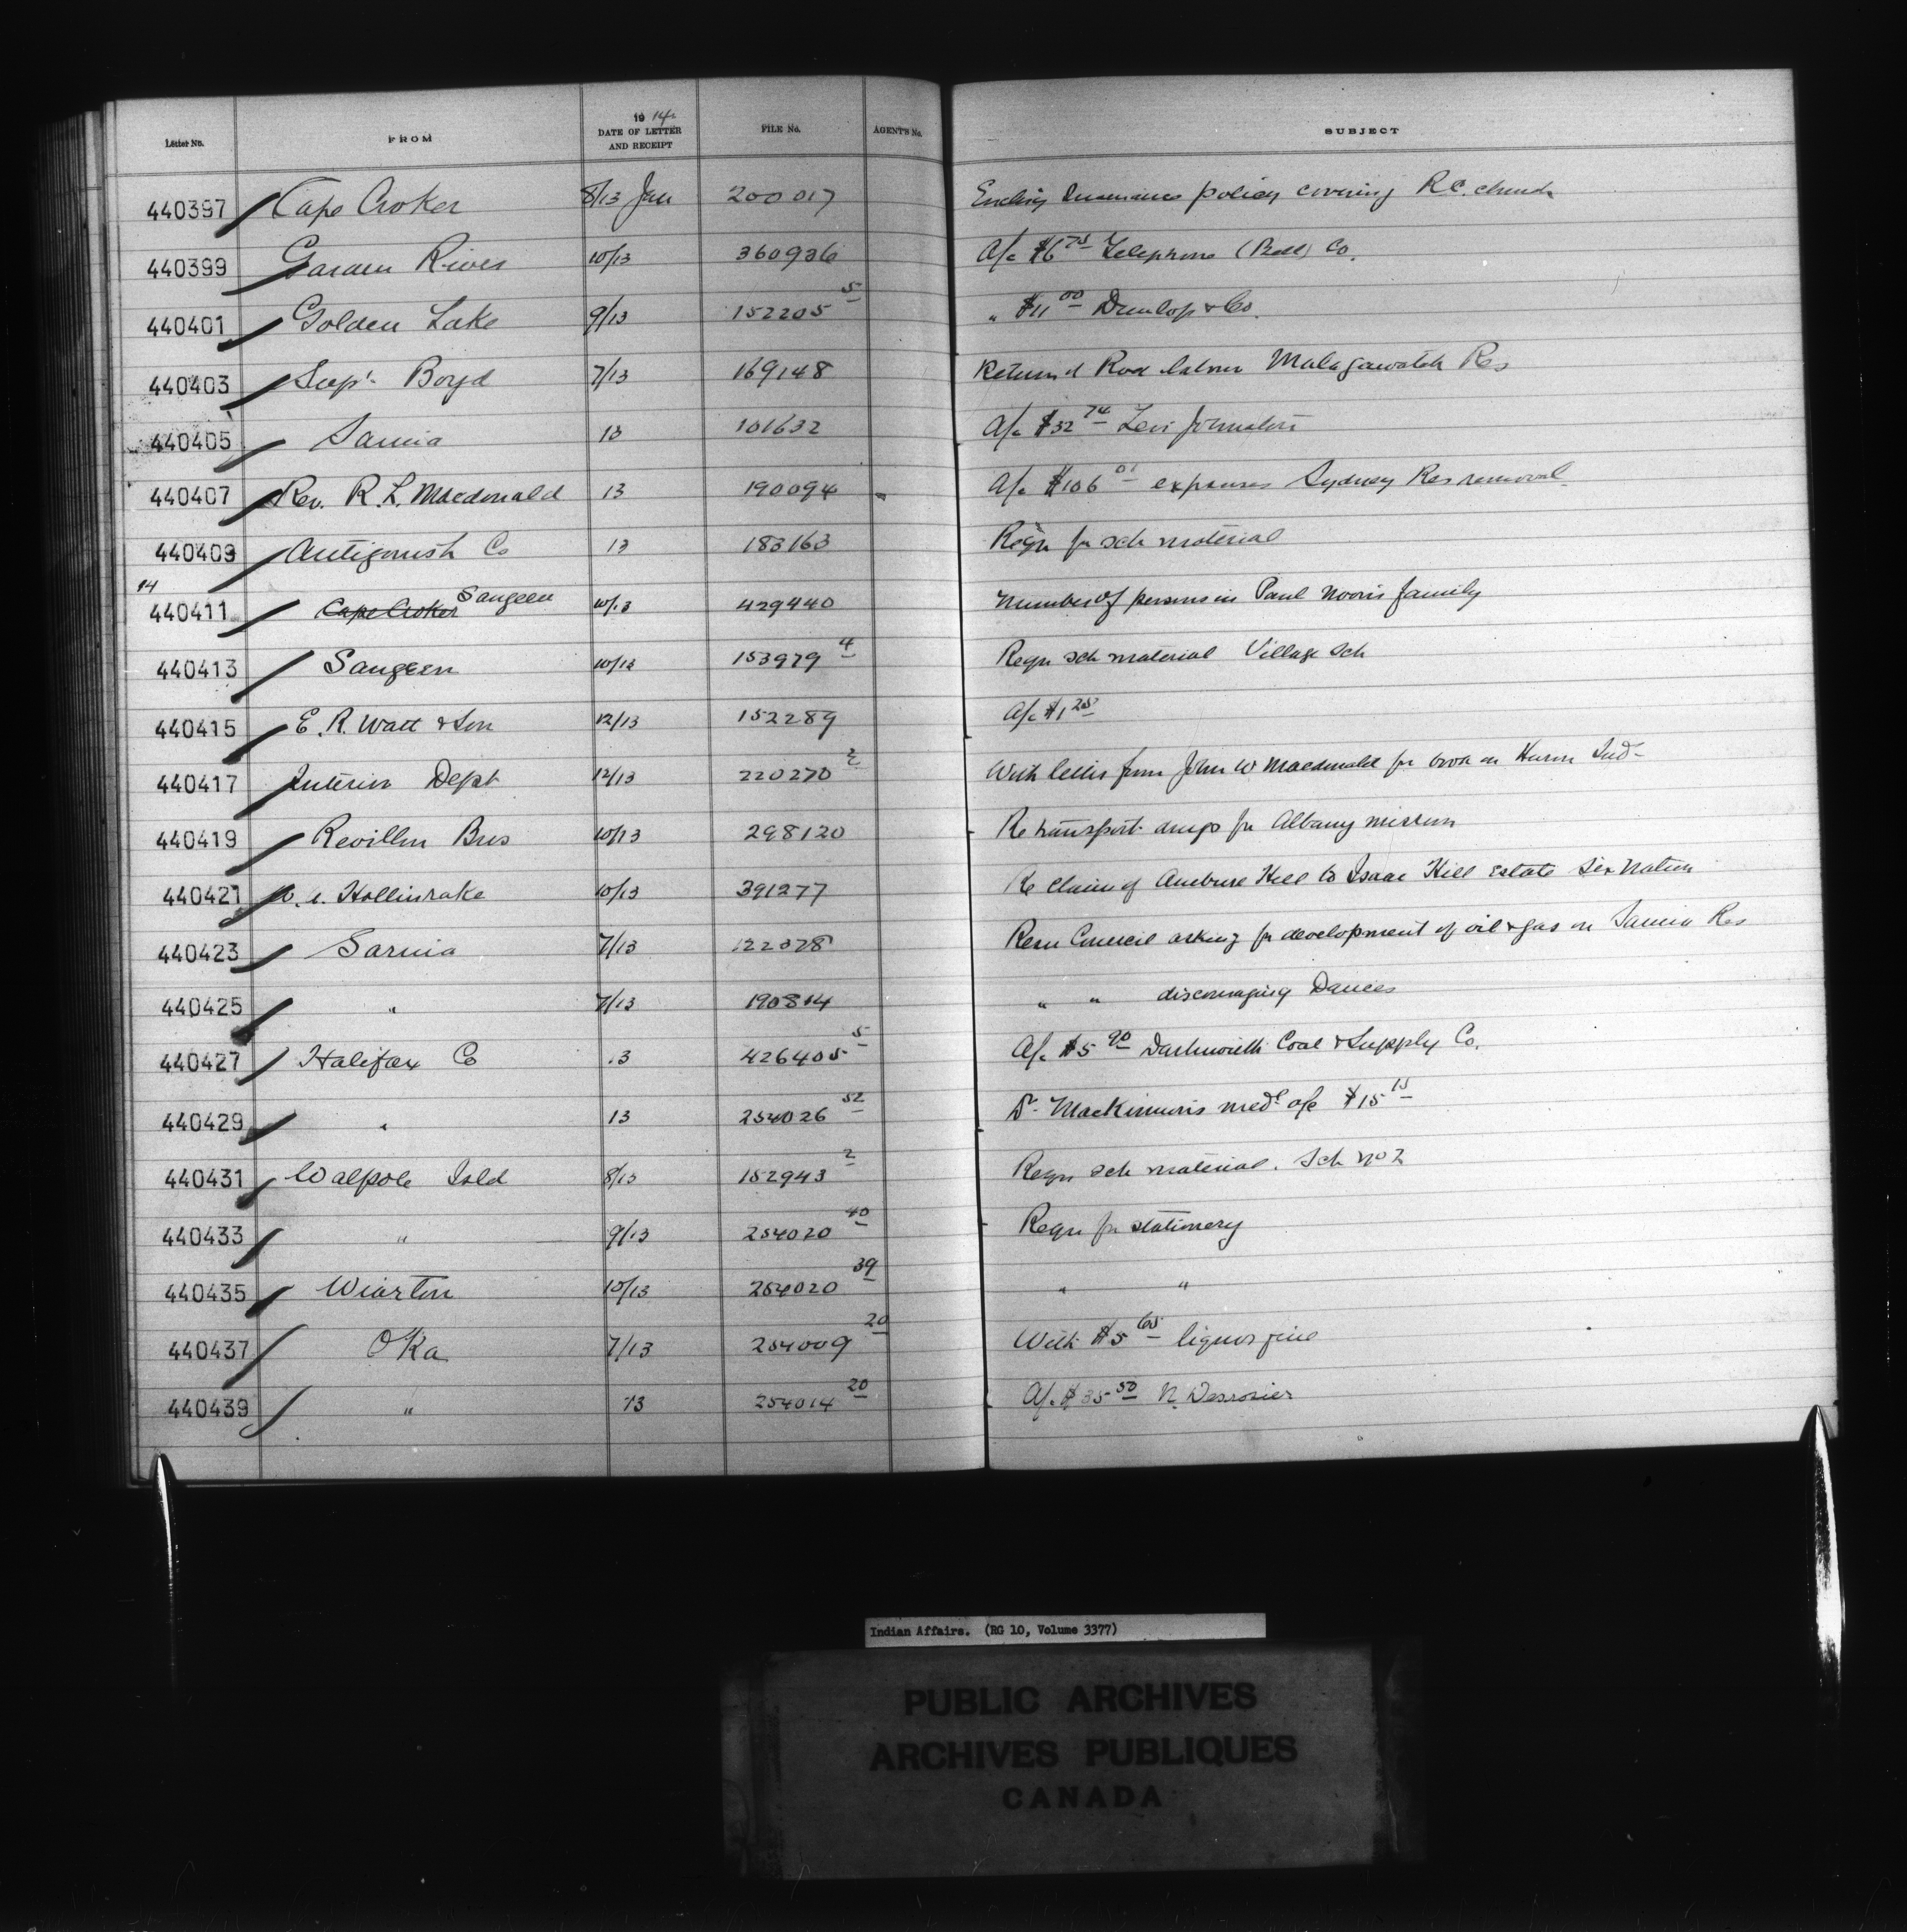 Letter No. FROM 1914 DATE OF LETTER AND RECEIPT FILE No. AGENT'S No. SUBJECT
440397 Cape Croker 8/13 Jan 200017 Enclos insurance policy covering R.C. church
440399 Garden River 10/13 360936 A/c $6 75 Telephone (Bell) Co.
440401 Golden Lake 9/13 152205 5 " $11 00 Dunlop & Co.
440403 Supt. Boyd 7/13 169148 Return of Road labour Malagawatch Res
440405 Sarnia 13 101632 A/c $32 74 Levi Johnston
440407 Rev. R. L. Macdonald 13 190094 A/c $106 01 expenses Sydney Res removal
440409 Antigonish Co 13 183163 Reqn for sch material
14
440411 Cape Croker Saugeen 10/13 429440 Number of persons in Paul Norris family
440413 Saugeen 10/13 153979 4 Reqn sch material Village Sch
440415 E. R. Watt & Son 12/13 152289 A/c $1 25
440417 Interior Dept 12/13 220270 2 With letter from John W Macdonald for book on Huron Ind-
440419 Revillon Bros 10/13 298120 Re transport drugs for Albany mission
440421 Hollinrake 10/13 391277 Re claim of Hill to Isaac Hill Estate Six Nation
440423 Sarnia 7/13 122028 Resn Council asking for development of oil & gas on Sarnia Res
440425 " 7/13 190814 " " discouraging Dances
440427 Halifax Co 13 426405 5 A/c $5 90 Dartmouth Coal & Supply Co.
440429 " 13 254026 52 Dr. MacKinnon's medl a/c $15 15
440431 Walpole Isld 8/13 152943 2 Reqn sch material. Sch No 2
440433 " 9/13 254020 40 Reqn for stationery
440435 Wiarton 10/13 254020 39 " "
440437 Oka 7/13 254009 20 With $5 65 liquor fine
440439 " 13 254014 20 A/c $35 50 N. Desrosier
Indian Affairs. (RG 10, Volume 3377)
PUBLIC ARCHIVES
ARCHIVES PUBLIQUES
CANADA